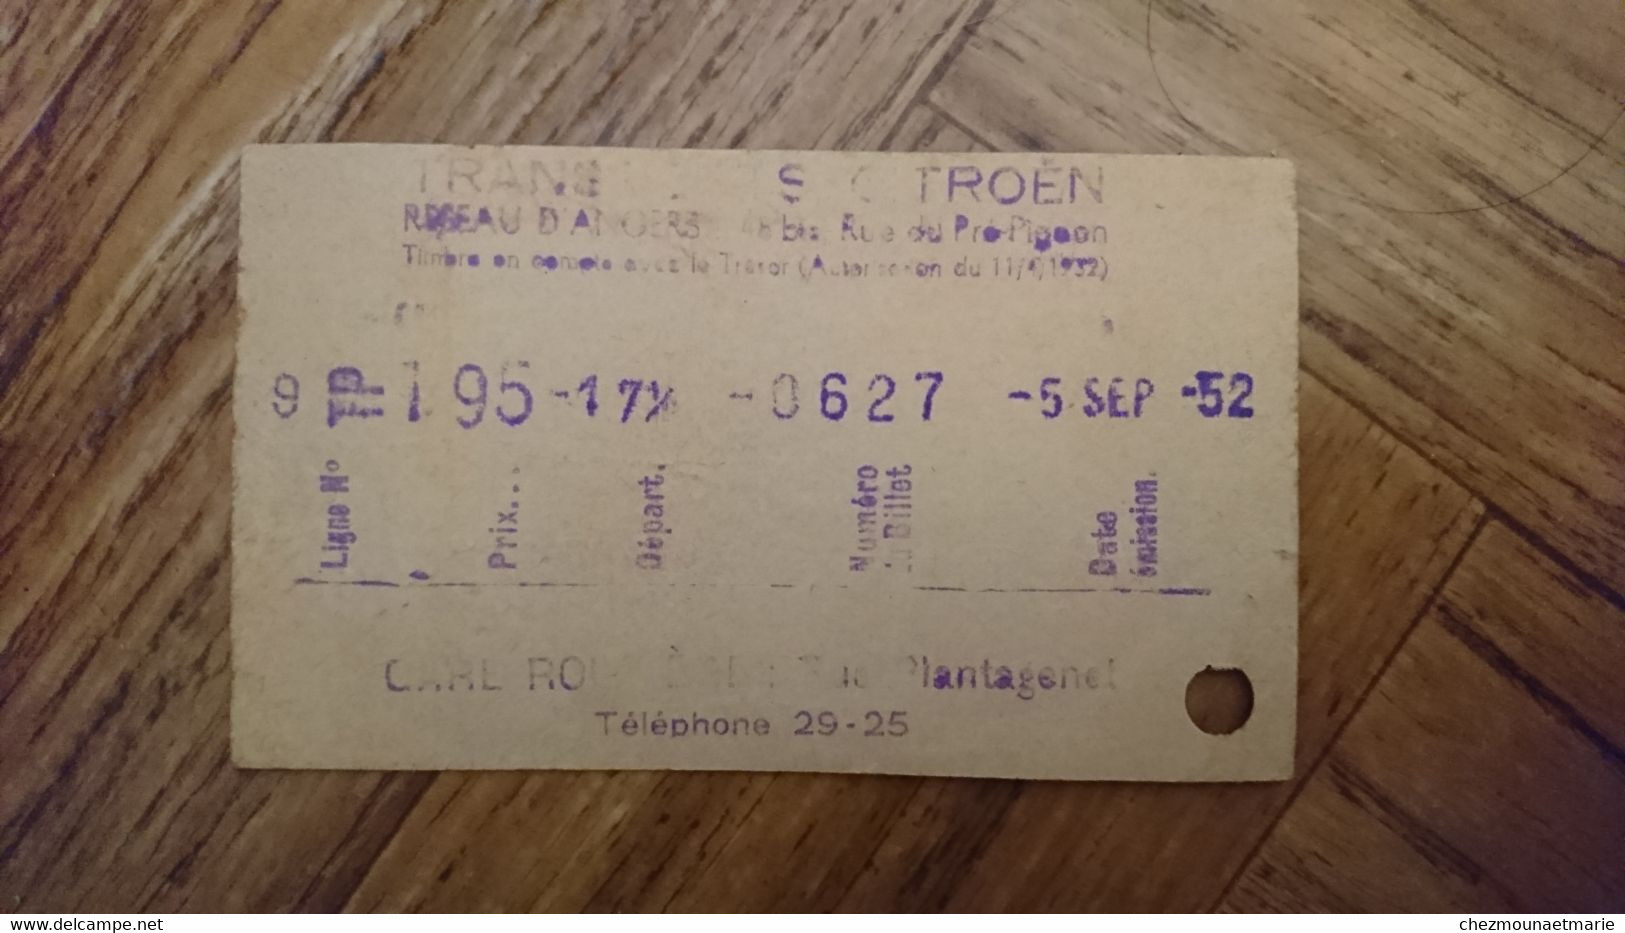 TRANS S CITROËN
RESEAU D'ANGERS 48 bis Rue du Pré-Pigeon
Timbre en compte avec le Trésor (Autorisation du 11/4/1932)
9 TP 195 -17½ -0627 -5 SEP -52
Ligne N°
Prix...
Départ.
Numéro
du Billet
Date
émission.
Rue Plantagenet
Téléphone 29-25
delcampe.net
chezmounaetmarie